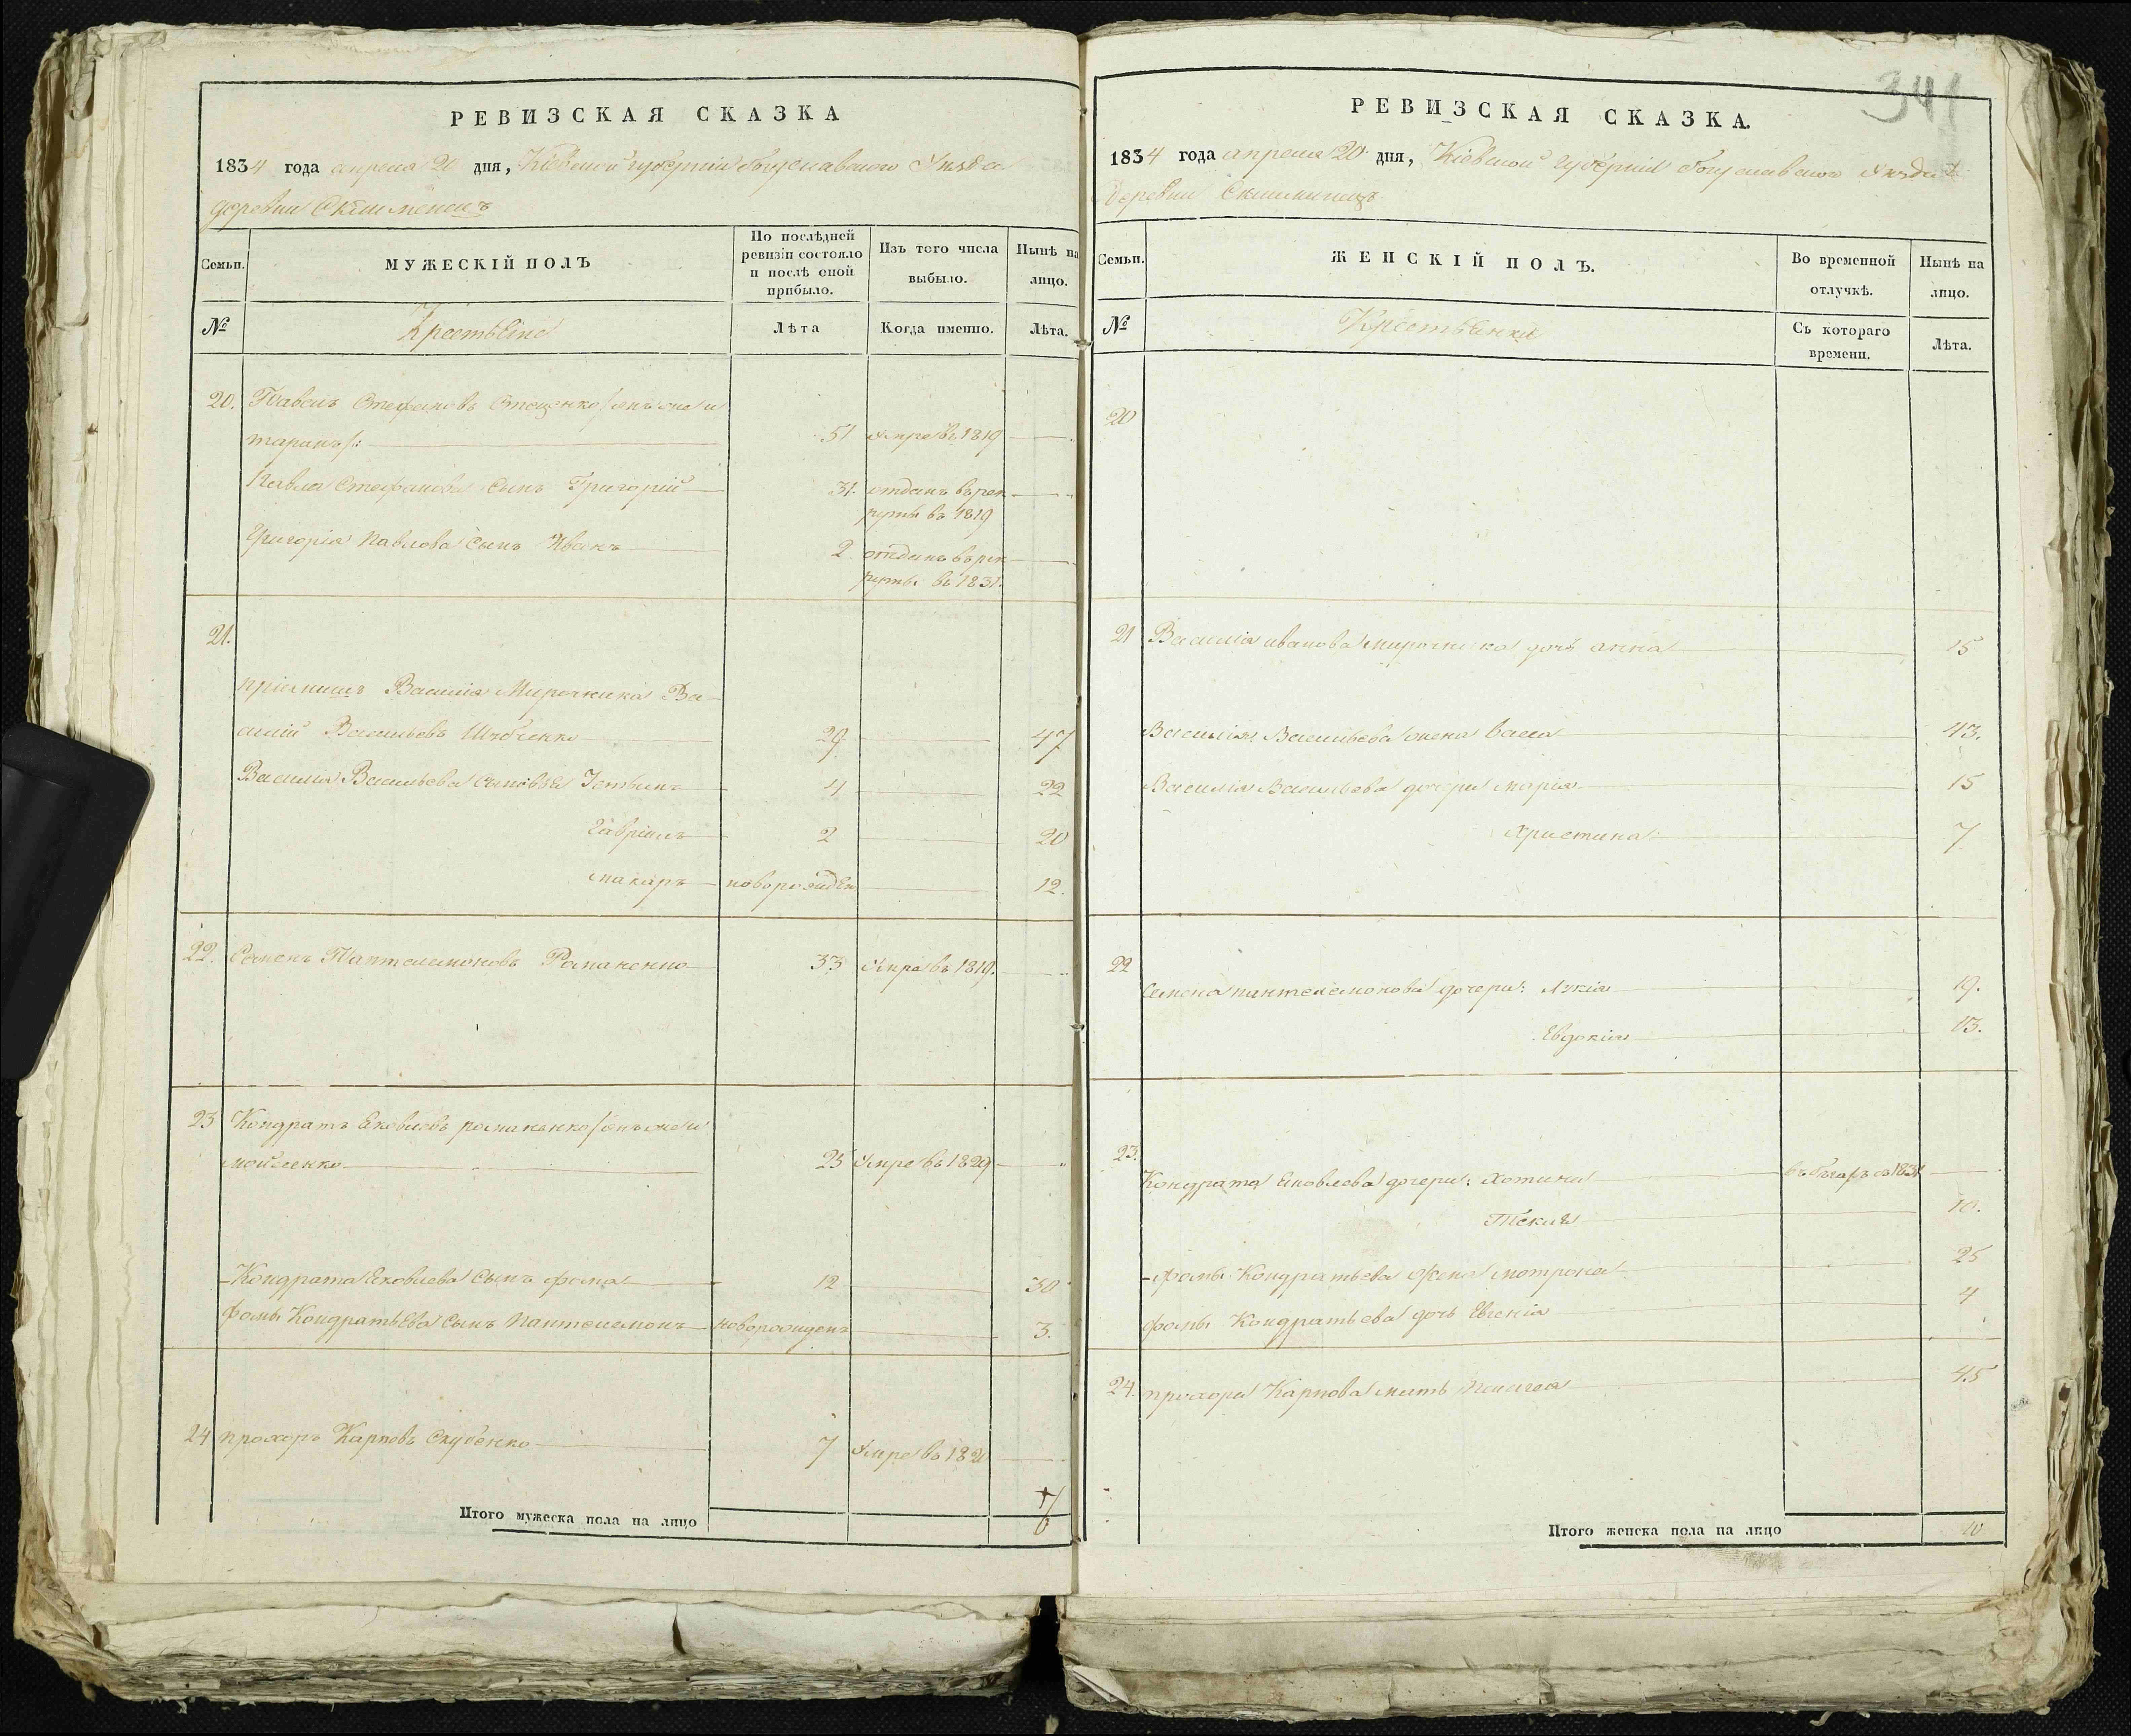 РЕВИЗСКАЯ СКАЗКА
1834 года апреля 20 дня, Кіевской губерніи Богуславского Уезда
деревни Екитменецъ
Семьи.
МУЖЕСКІЙ ПОЛЪ
По послѣдней ревизіи состояло и послѣ оной прибыло.
Изъ того числа выбыло.
Нынѣ на лицо.
№
Крестьяне
Лѣта
Когда именно.
Лѣта.
20. Павелъ Стефановъ Стеценко /: онъ же и
таранъ /: 51 умре въ 1819
Павла Стефанова сынъ Григорій 31. отданъ въ рек
руты въ 1819
Григорія Павлова сынъ Иванъ 2 отданъ въ рек
руты въ 1831.
21.
пріемишъ Василія Мирочника Ва-
силій Васильевъ Шевченко 29 47
Василія Васильева сыновья Устинъ 4 22
Гавріилъ 2 20
макаръ новорожден 12.
22. Семенъ Пантелемоновъ Романенко 33 умре въ 1819.
23 Кондратъ Яковлевъ романенко /: онъ же и
мойсенко 25 умре въ 1829
Кондрата Яковлева сынъ фома 12 30
фомы Кондратьева сынъ Пантелемонъ новорожденъ 3.
24 прохоръ Карповъ Скубенко 7 умре въ 1820
Итого мужеска пола на лицо 6
341
РЕВИЗСКАЯ СКАЗКА.
1834 года апреля 20 дня, Кіевской губерніи Богуславского уезда
деревни
Семьи.
ЖЕНСКІЙ ПОЛЪ.
Во временной отлучкѣ.
Нынѣ на лицо.
№
Крестьянки
Съ котораго времени.
Лѣта.
20
21 Василія иванова мирочника дочь анна 15
Василія Васильева жена васса 43.
Василія Васильева дочери марія 15
христина 7
22
Семена пантелемонова дочери: Лукія 19.
Евдокія 13.
23.
Кондрата Яковлева дочери: хотина въ бегахъ съ 1831
Текля 10.
фомы Кондратьева жена мотрона 25
фомы Кондратьева дочь Евгенія 4
24. прохора Карпова мать 45
Итого женска пола на лицо 10